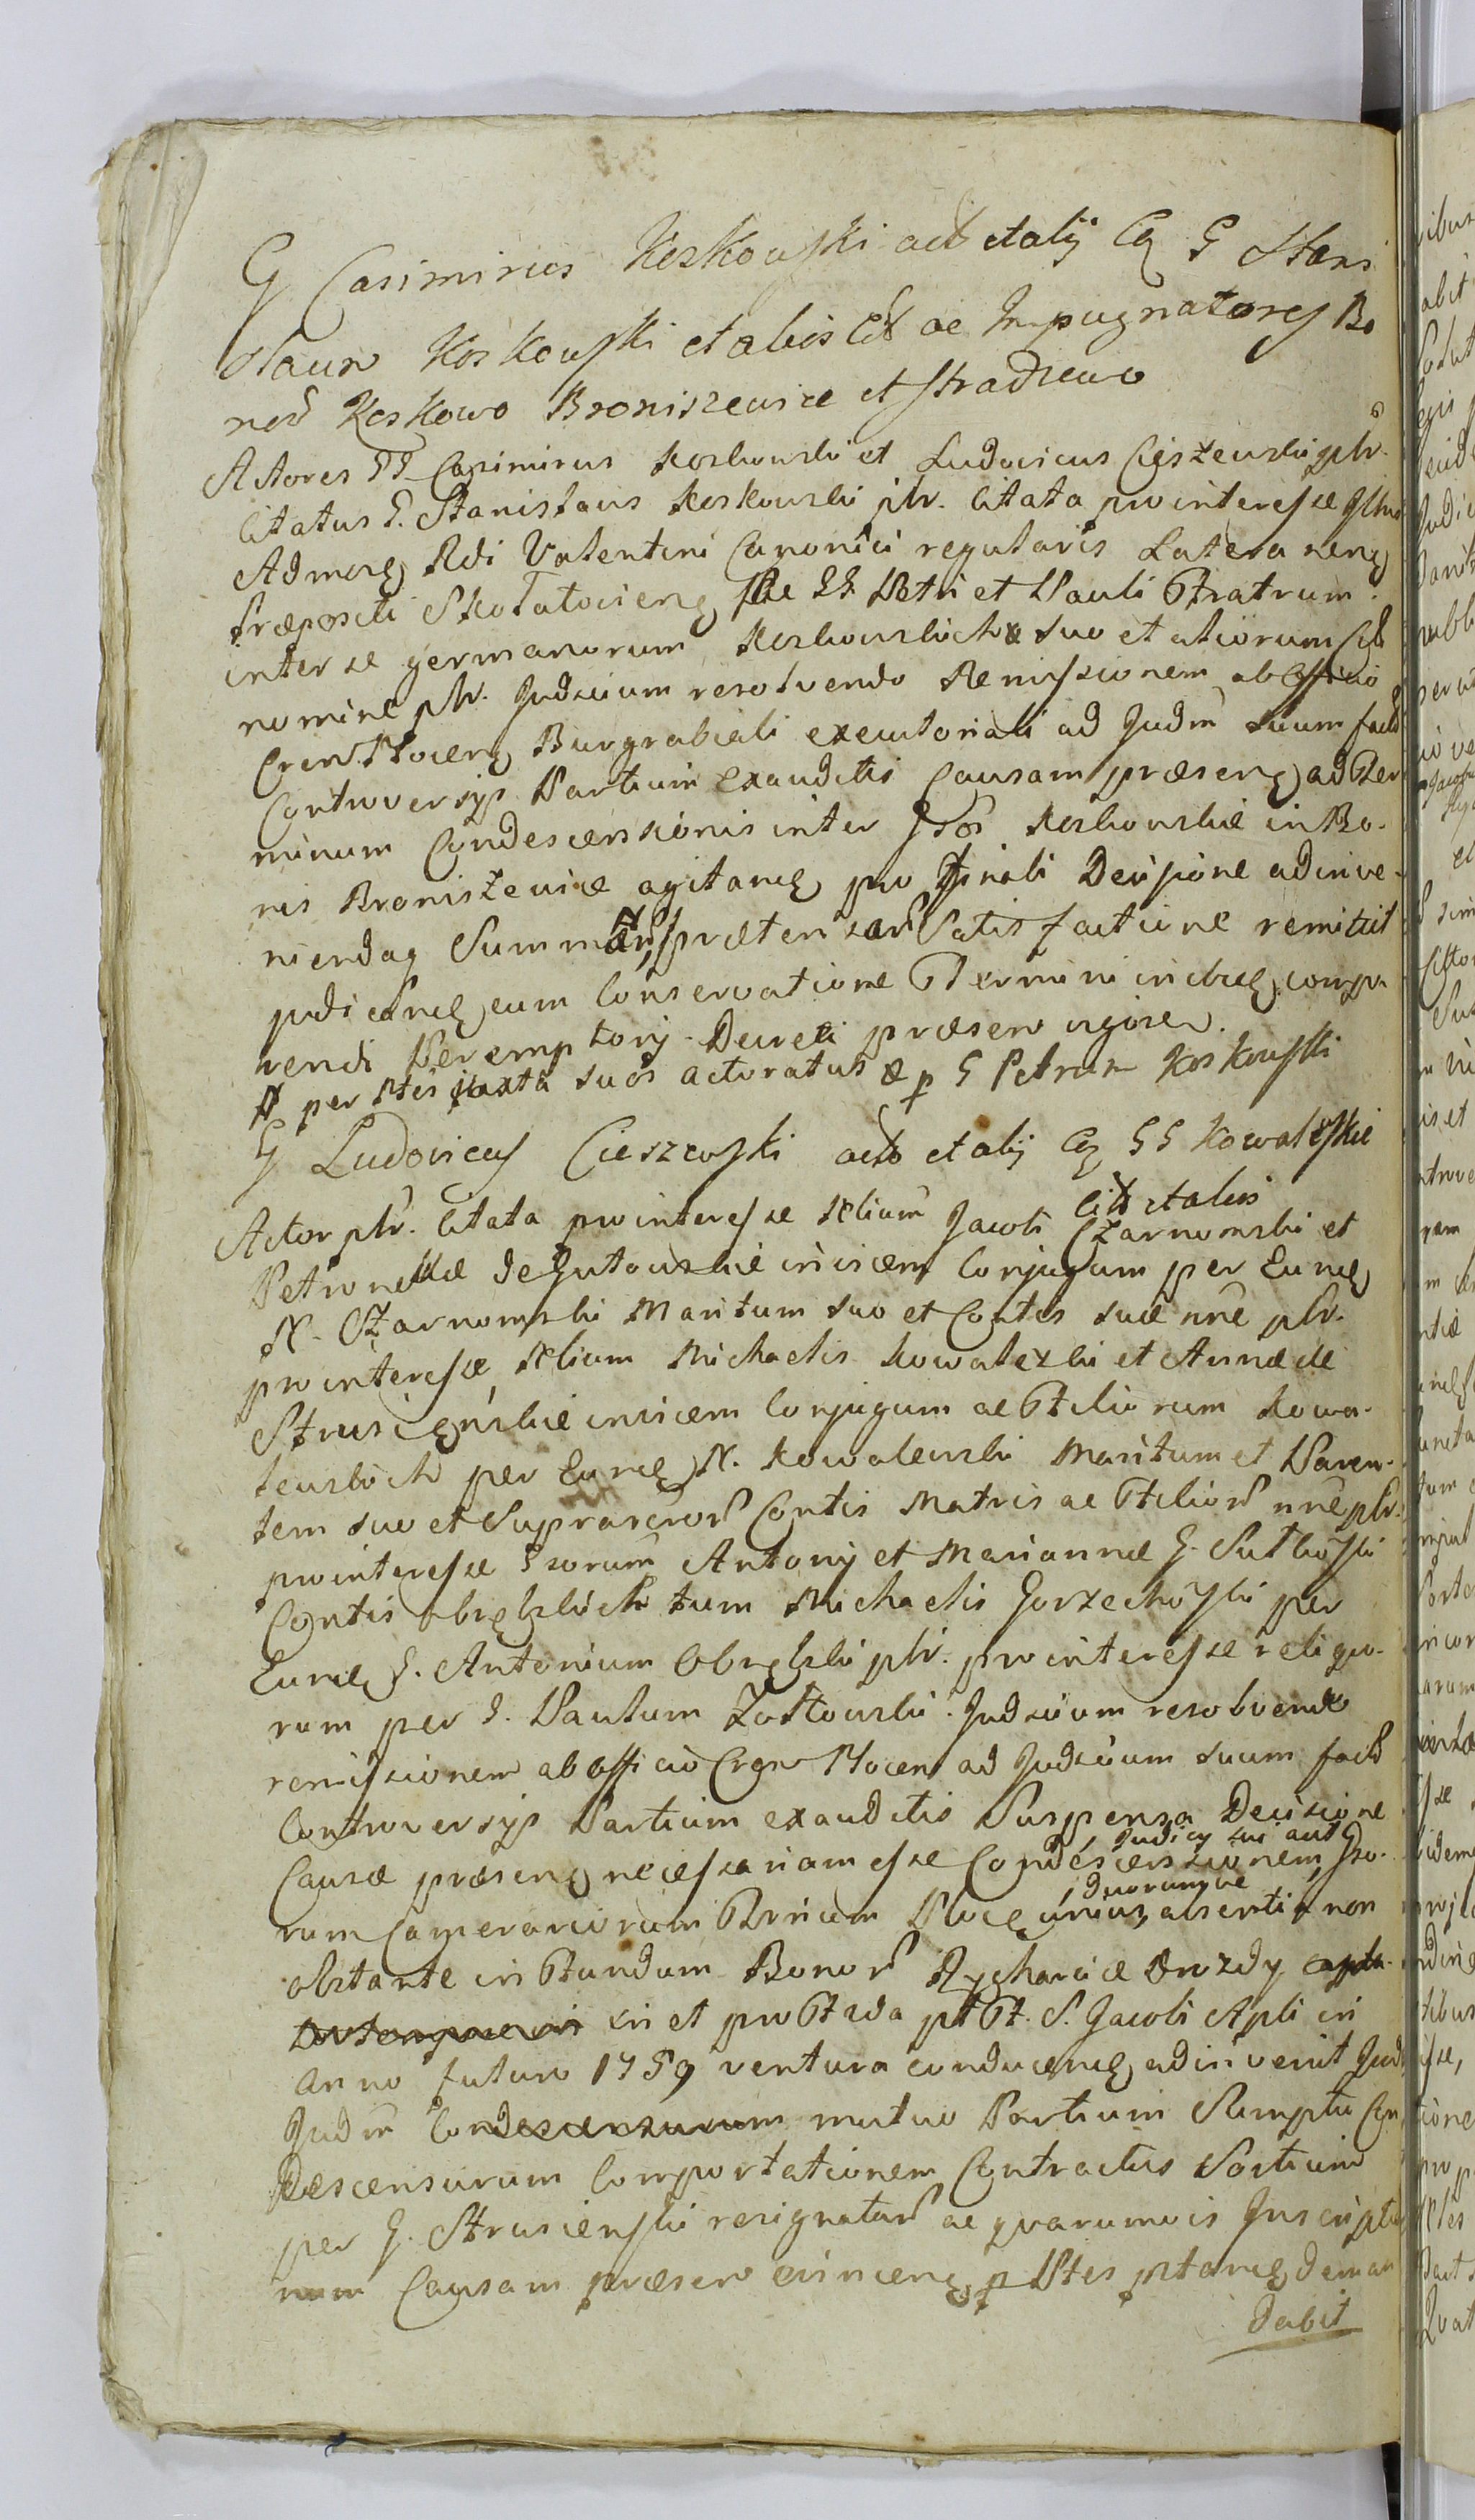 G Casimirus Koskowski act et alij Cq G Stani
slaum Koskowski et alios Cit ac Impugnatores Bo
nor Koskowo Broniszewice et Stradzewo
Actores GG Casimirus Koskowski et Ludovicus Cieszewski pbr.
Citatus G. Stanislaus Koskowski pbr. Citata pro interesse
Admor Rdi Valentini Canonici regularis Lateranen
Præpositi SS. Petri et Pauli Fratrum
inter se germanorum Koskowskich suo et aliorum Cit
nomine pbr. Judicium resolvendo Remissionem ab Officio
Cren. Plocen Burgrabiali executoriali ad Judm suum fact
Controversys Partium exauditis Causam præsen ad Ter
minum Condescensionis inter Gsos Koskowskie in Bo-
nis Broniszewice agitand pro Finali Decisione adinve-
niendaq Summar prætensar Satisfactione remittit
judicand cum Conservatione Termini ibidem compa
rendi Peremptory Decreti præsen vigore.
# per Ptes juxta suos actoratus & p G Petrum Koskowski
G Ludovicus Cieszewski act et alij Cq GG Kowalewskie
Cit et alios
Actor pbr. Citata pro interesse Nlium Jacobi Czarnomski et
Petronellæ de Gutowskie invicem Conjugum per Eund
N. Czarnomski Maritum suo et Contis suæ nne pbr.
pro interesse Nlium Michaelis Kowalewski et Annæ de
Strusienskie invicem Conjugum ac Filiorum Kowa-
lewskich per Eund N. Kowalewski Maritum et Paren-
tem suo et Suprascror Contis Matris ac Filior nne pbr.
pro interesse Gsorum Antony et Mariannæ G. Sutkoski
Contis Obrębskich tum Michaelis Gorzechoski per
Eund G. Antonium Obrębski pbr. pro interesse reliquo-
rum per G. Paulum Zoltowski. Judicium resolvendo
remissionem ab Officio Cren Plocen ad Judicium suum fact
Controversys Partium exauditis Suspensa Decisione
Judicy sui aut
Causæ præsen necessariam esse Condescensionem Gso-
duorumve
rum Camerariorum Plocen unius absentia non
obstante in Fundum Bonor Rycharcice Drozdy
in et pro Fda pt F. S. Jacobi Apli in
anno futuro 1759 ventura conducend adinvenit Jud
Judm Condescensurum mutuo Partium Sumptu Con
descensurum Comportationem Contractus Sortium
per G. Strusienski resignatar ac quarumvis Inscriptio
num Causam præsen evincen p Ptes ptand deman
dabit